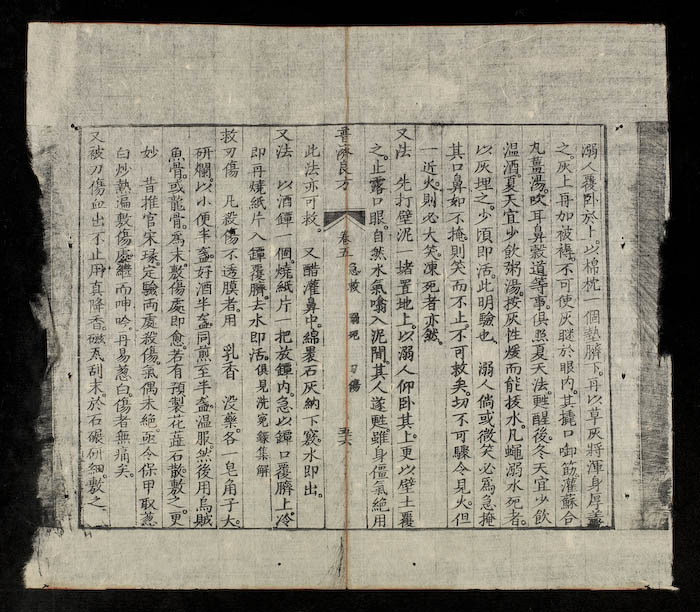 溺人覆卧於上。以棉枕一個墊臍下。再以草灰將渾身厚蓋
之。灰上再加被褥。不可使灰瞇於眼內。其撬口啣筯灌蘇合
丸薑湯。吹耳鼻穀道等事。俱照夏天法。甦醒後。冬天宜少飲
温酒。夏天宜少飲粥湯。按灰性煖而能拔水。凡蠅溺水死者。
以灰埋之。少頃即活。此明驗也 溺人倘或微笑必爲急掩
其口鼻如不掩。則笑而不止。不可救矣。切不可驟令見火。但
一近火。則必大笑。凍死者亦然。
又法 先打壁泥一堵置地上。以溺人仰卧其上。更以壁土覆
之。止露口眼。自然水氣噏入泥間。其人遂甦。雖身僵氣絶用
普濟良方 卷五 急救 溺死 刃傷 五六
此法亦可救。 又醋灌鼻中。綿裹石灰納下竅水即出。
又法 以酒罈一個。燒紙片一把放罈內。急以罈口覆臍上冷
即再燒紙片入罈覆臍。去水即活。俱見洗寃錄集解
救刃傷 凡殺傷不透膜者。用 乳香 没藥。各一皂角子大。
研爛。以小便半盞。好酒半盞同煎至半盞。温服。然後用烏賊
魚骨。或龍骨。爲末。製傷處即愈。若有預製花蕋石散敷之。更
妙 昔推官宋瑑。定驗兩處殺傷。氣偶未絶。亟令保甲取葱
白炒熱遍敷傷處。繼而呻吟。再易葱白。傷者無痛矣。
又被刀傷血出不止用真降香。磁瓦刮末於石碾研細。敷之